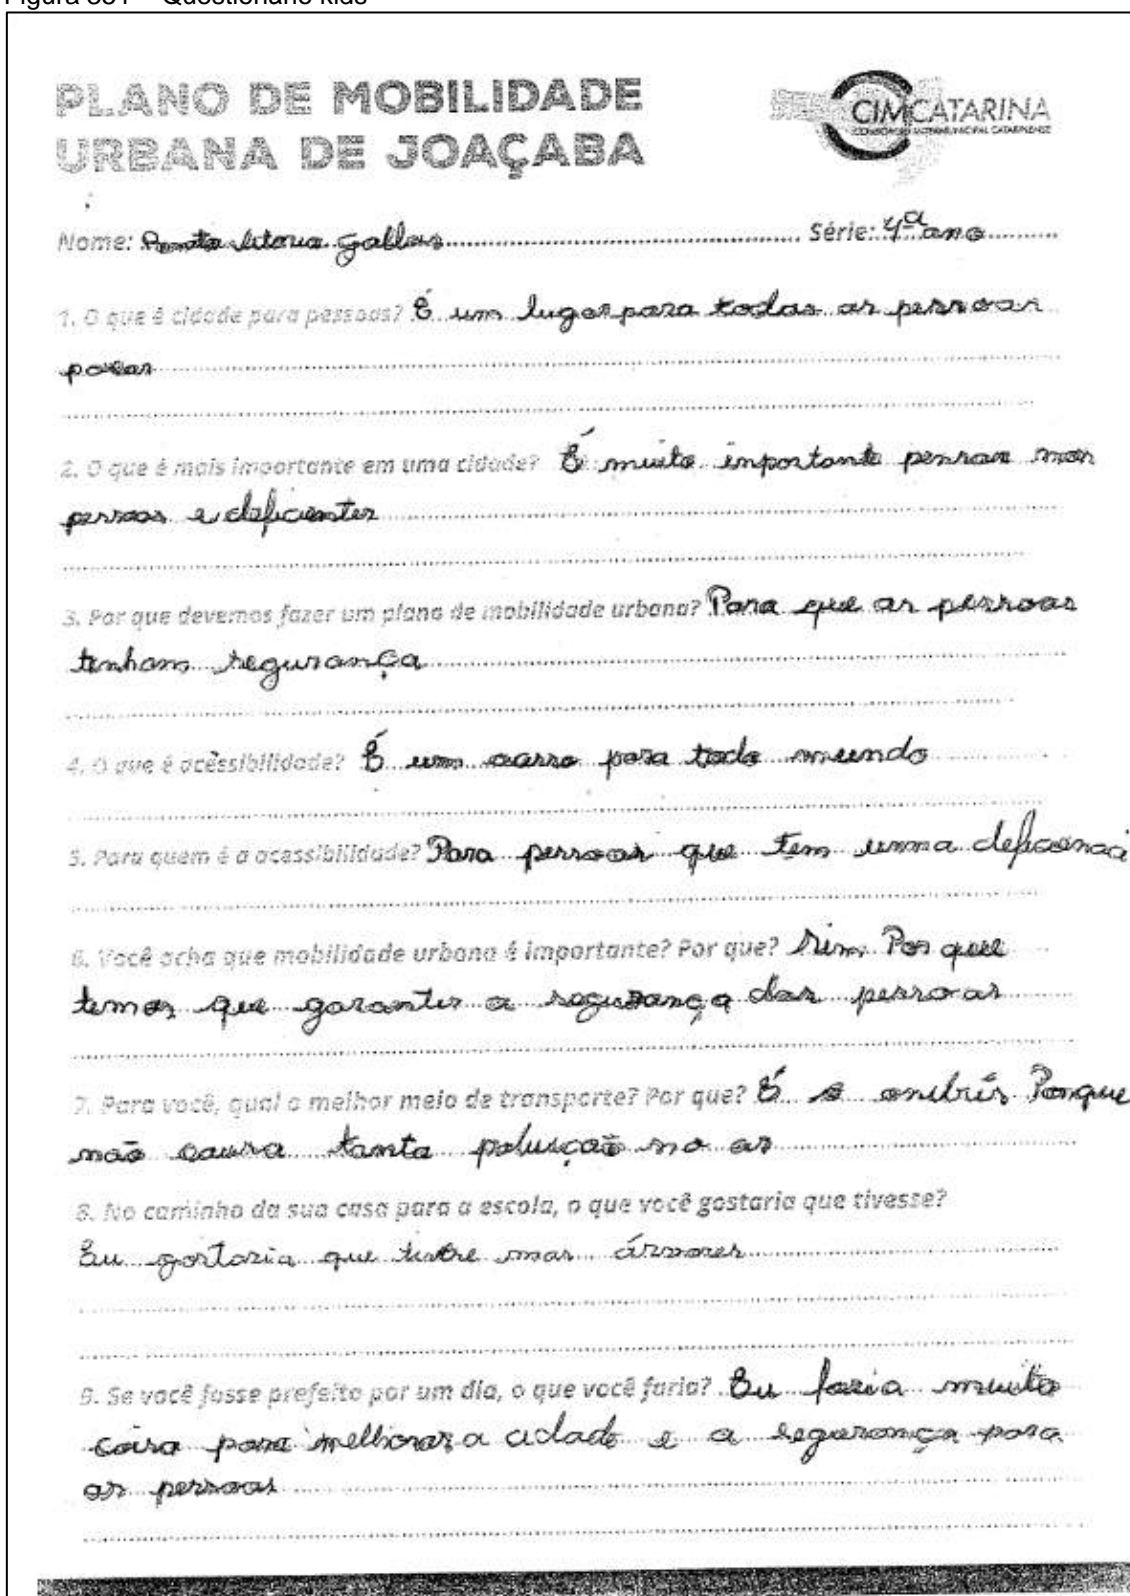 Questionário kids
PLANO DE MOBILIDADE
URBANA DE JOAÇABA
CIMCATARINA
CONSÓRCIO INTERMUNICIPAL CATARINENSE
Nome: Gallas Série: 4º ano
1. O que é cidade para pessoas? É um lugar para todas as pessoas
2. O que é mais importante em uma cidade? É muito importante pensar nas
pessoas e deficientes
3. Por que devemos fazer um plano de mobilidade urbana? Para que as pessoas
tenham segurança
4. O que é acessibilidade? É um carro para todo mundo
5. Para quem é a acessibilidade? Para pessoas que tem umma deficienci
6. Você acha que mobilidade urbana é importante? Por que? Sim Por que
temos que garantir a segurança das pessoas
7. Para você, qual o melhor meio de transporte? Por que? É o onibús Porque
não causa tanta poluição no ar
8. No caminho da sua casa para a escola, o que você gostaria que tivesse?
Eu gostaria que mas árvores
9. Se você fosse prefeito por um dia, o que você faria? Eu faria muito
coisa para melhorar a cidade e a segurança para
as pessoas